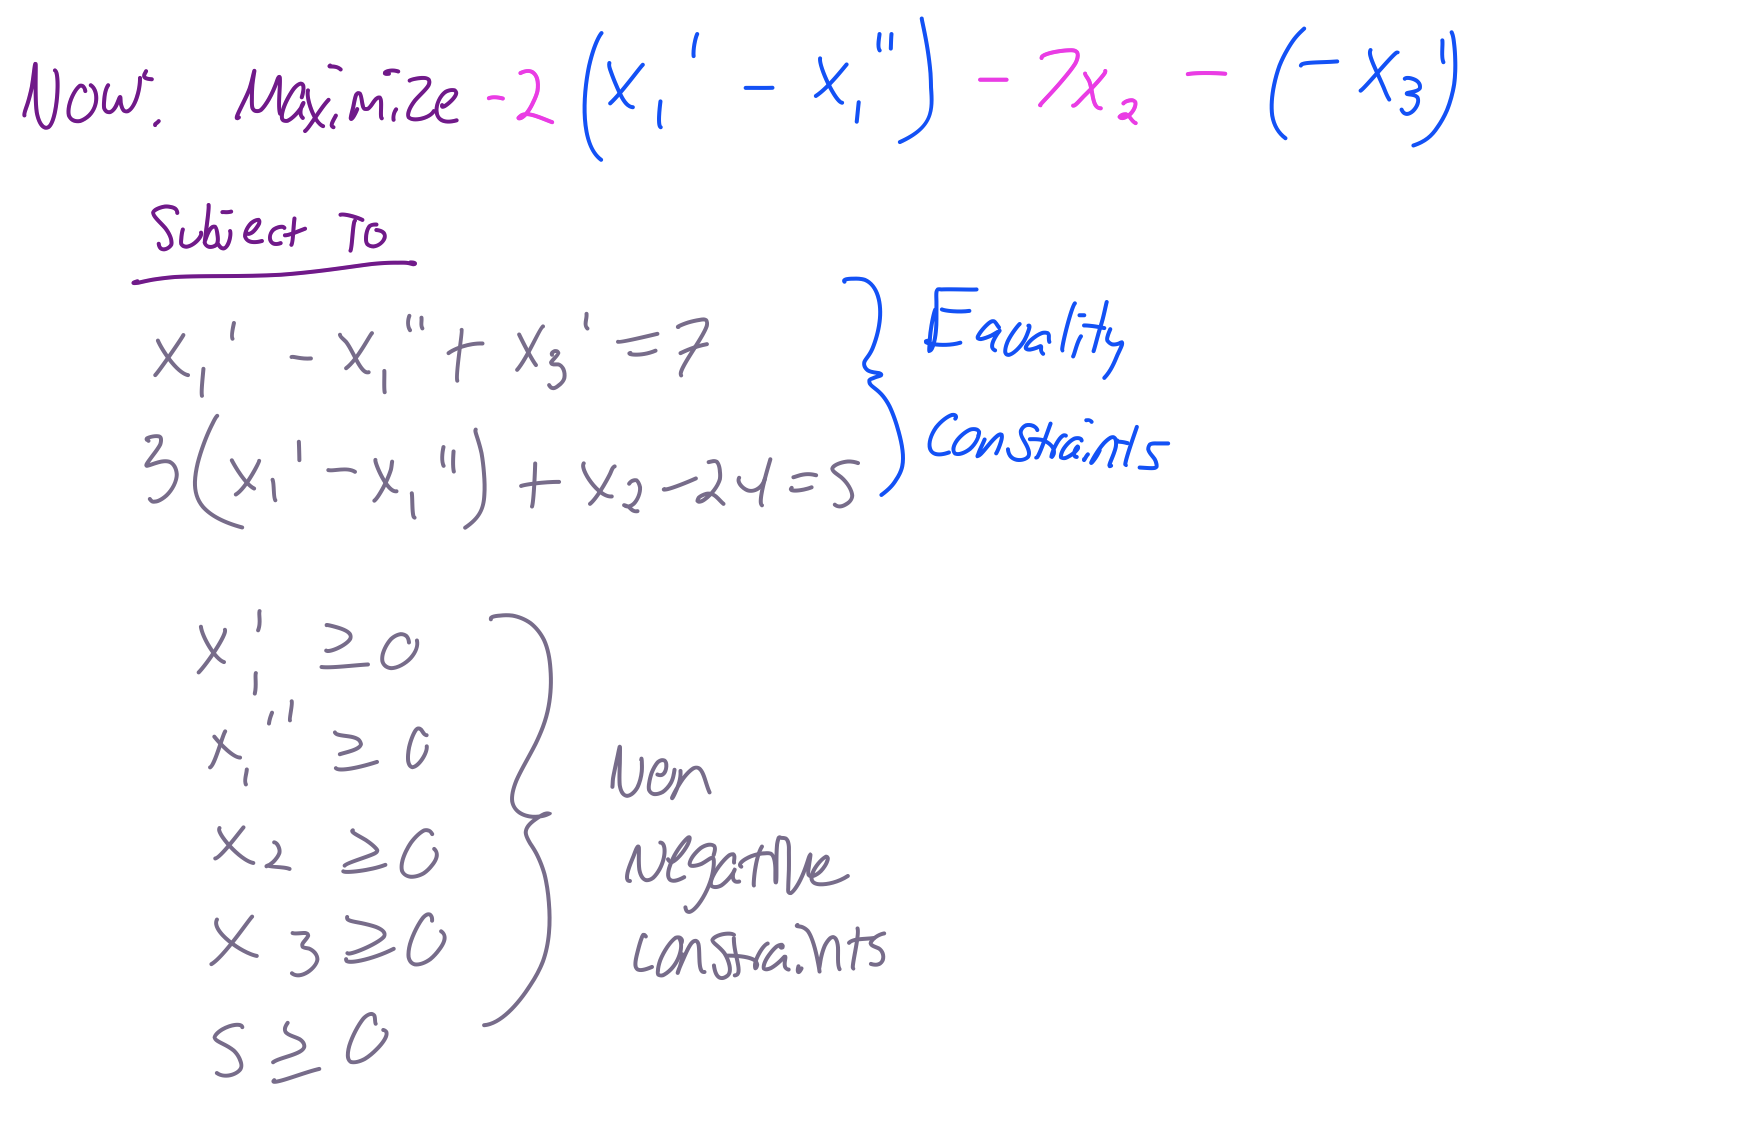 Now: Maximize -2 (x₁' - x₁'') - 7x₂ - (-x₃')
Subject To
x₁' - x₁'' + x₃' = 7
3(x₁' - x₁'') + x₂ - 24 = S
Equality
Constraints
x₁' ≥ 0
x₁'' ≥ 0
x₂ ≥ 0
x₃ ≥ 0
S ≥ 0
Non
negative
constraints